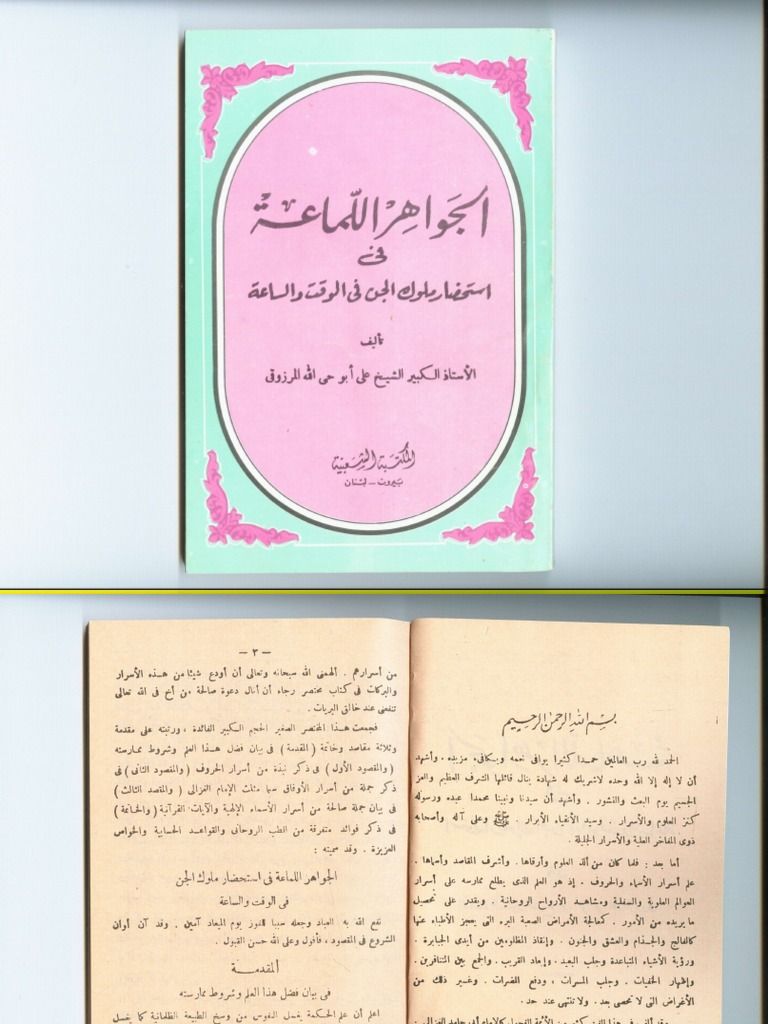 الجواهر اللماعة
في
استحضار ملوك الجن في الوقت والساعة
تأليف
الأستاذ الكبير الشيخ على أبو حى الله المرزوقى
المكتبة الشعبية
بيروت - لبنان
بسم الله الرحمن الرحيم
الحمد لله رب العالمين حمدا كثيرا يوافى نعمه ويكافىء مزيده . وأشهد
أن لا إله إلا الله وحده لاشريك له شهادة ينال قائلها الشرف العظيم والعز
الجسيم يوم البعث والنشور . وأشهد أن سيدنا ونبينا محمدا عبده ورسوله
كنز العلوم والأسرار . وسيد الأتقياء الأبرار . ﷺ وعلى آله وأصحابه
ذوى المفاخر العلية والأسرار الجليلة .
أما بعد : فلما كان من ألذ العلوم وأرقاها . وأشرف المقاصد وأسماها .
علم أسرار الأسماء والحروف . إذ هو العلم الذى يطلع ممارسه على أسرار
العوالم العلوية والسفلية ومشاهد الأرواح الروحانية . ويقدر على تحصيل
ما يريده من الأمور . كمعالجة الأمراض الصعبة البرء التى يعجز الأطباء عنها
كالفالج والجذام والعشق والجنون . وإنقاذ المظلومين من أيدى الجبابرة .
ورؤية الأشياء المتباعدة وجلب البعيد . وإبعاد القريب . والجمع بين المتنافرين .
وإظهار الخفيات . وجلب المسرات . ودفع المضرات . وغير ذلك من
الأغراض التى لا تحصى بعد . ولا تنتهى عند حد .
وقد ألف فى هذا الفن كثير من الأئمة الفحول كالإمام أبى حامد الغزالى
— ٣ —
من أسرارهم . ألهمنى الله سبحانه وتعالى أن أودع شيئا من هذه الأسرار
والبركات فى كتاب مختصر رجاء أن أنال دعوة صالحة من أخ فى الله تعالى
تنفعنى عند خالق البريات .
فجمعت هذا المختصر الصغير الحجم الكبير الفائدة ، ورتبته على مقدمة
وثلاثة مقاصد وخاتمة ( المقدمة ) فى بيان فضل هذا العلم وشروط ممارسته
( والمقصود الأول ) فى ذكر نبذة من أسرار الحروف ( والمقصود الثانى ) فى
ذكر جملة من أسرار الأوفاق سيما مثلث الإمام الغزالى ( والمقصد الثالث )
فى بيان جملة صالحة من أسرار الأسماء الإلهية والآيات القرآنية ( والخاتمة )
فى ذكر فوائد متفرقة من الطب الروحانى والقواعد الحسابية والخواص
العزيزة . وقد سميته :
الجواهر اللماعة فى استحضار ملوك الجن
فى الوقت والساعة
نفع الله به العباد وجعله سببا للفوز يوم الميعاد آمين . وقد آن أوان
الشروع فى المقصود ، فأقول وعلى الله حسن القبول .
المقدمة
فى بيان فضل هذا العلم وشروط ممارسته
اعلم أن علم الحكمة يغسل النفوس من وسخ الطبيعة الظلمانية كما يغسل